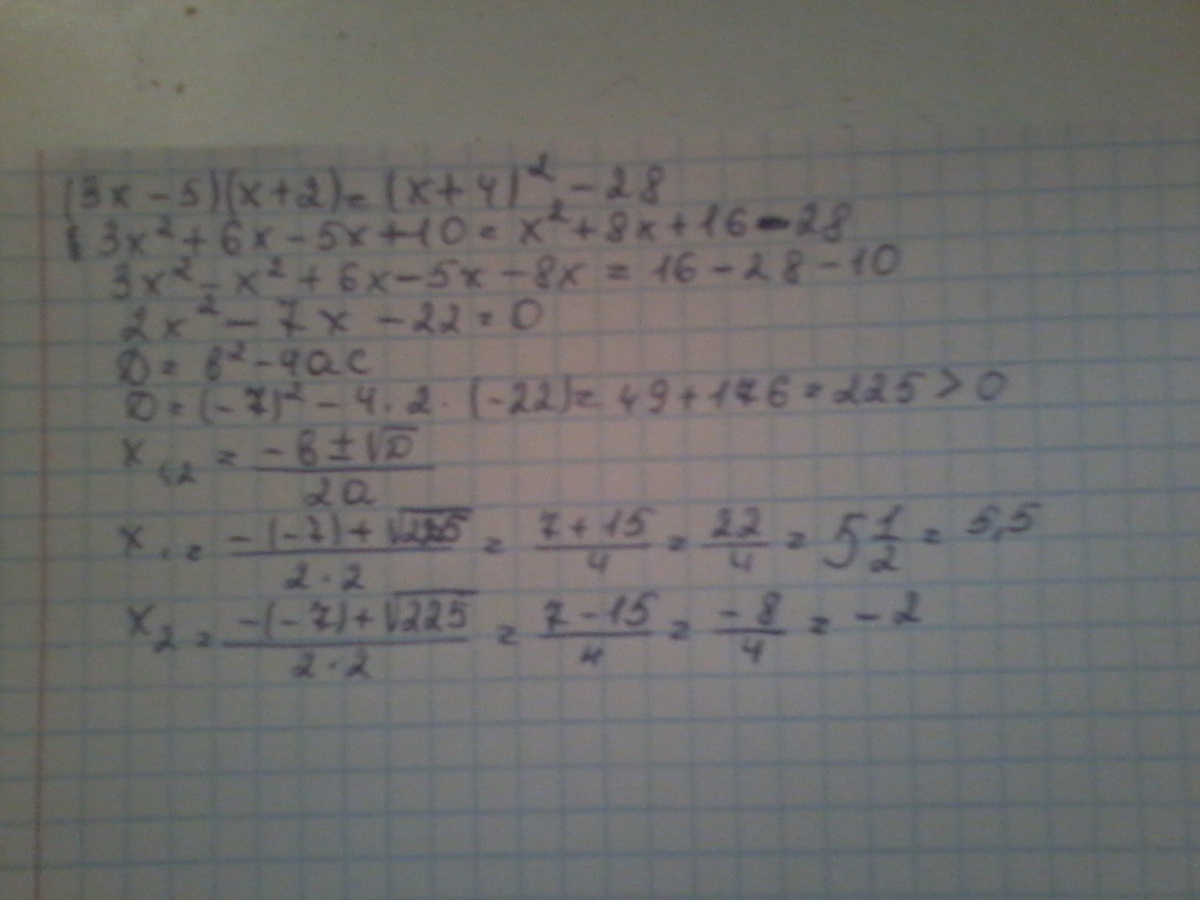 (3x - 5)(x + 2) = (x + 4)² - 28
3x² + 6x - 5x + 10 = x² + 8x + 16 - 28
3x² - x² + 6x - 5x - 8x = 16 - 28 - 10
2x² - 7x - 22 = 0
D = в² - 4ac
D = (-7)² - 4 · 2 · (-22) = 49 + 176 = 225 > 0
x₁,₂ = (-в ± √D) / 2a
x₁ = (-(-7) + √225) / (2 · 2) = (7 + 15) / 4 = 22/4 = 5 1/2 = 5,5
x₂ = (-(-7) + √225) / (2 · 2) = (7 - 15) / 4 = -8/4 = -2